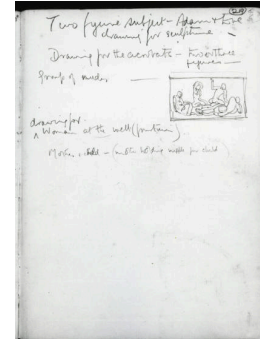 Two figure subject - Adam & Eve
drawing for sculpture
Drawing for the - two or three
figures -
Group of nudes
drawing for
a Woman at the well (fountain)
Mother & child - (mother holding for child)